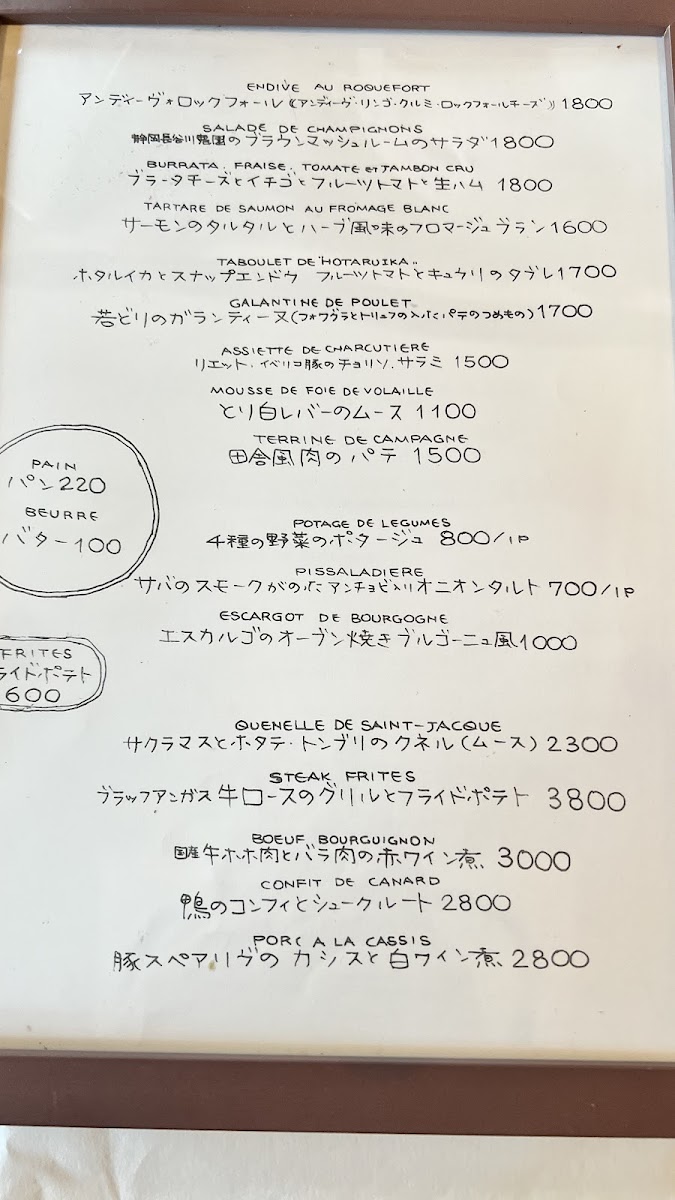 ENDIVE AU ROQUEFORT
アンディーヴォロックフォール《アンディーヴ・リンゴ・クルミ・ロックフォールチーズ》1800
SALADE DE CHAMPIGNONS
静岡長谷川農園のブラウンマッシュルームのサラダ1800
BURRATA, FRAISE, TOMATE et JAMBON CRU
ブラータチーズとイチゴとフルーツトマトと生ハム 1800
TARTARE DE SAUMON AU FROMAGE BLANC
サーモンのタルタルとハーブ風味のフロマージュブラン1600
TABOULET DE "HOTARUIKA"
ホタルイカとスナップエンドウ フルーツトマトとキュウリのタブレ1700
GALANTINE DE POULET
若どりのガランティーヌ(フォワグラとトリュフの入ったパテのつめもの)1700
ASSIETTE DE CHARCUTIERE
リエット・イベリコ豚のチョリソ・サラミ 1500
MOUSSE DE FOIE DE VOLAILLE
とり白レバーのムース 1100
TERRINE DE CAMPAGNE
田舎風肉のパテ 1500
PAIN
パン220
BEURRE
バター100
POTAGE DE LEGUMES
4種の野菜のポタージュ 800/1P
PISSALADIERE
サバのスモークがのった アンチョビ入りオニオンタルト 700/1P
ESCARGOT DE BOURGOGNE
エスカルゴのオーブン焼きブルゴーニュ風1000
FRITES
ライドポテト
600
QUENELLE DE SAINT-JACQUE
サクラマスとホタテ・トンブリのクネル(ムース) 2300
STEAK FRITES
ブラックアンガス牛ロースのグリルとフライドポテト 3800
BOEUF BOURGUIGNON
国産牛ホホ肉とバラ肉の赤ワイン煮 3000
CONFIT DE CANARD
鴨のコンフィとシュークルート 2800
PORC A LA CASSIS
豚スペアリヴの カシスと白ワイン煮 2800